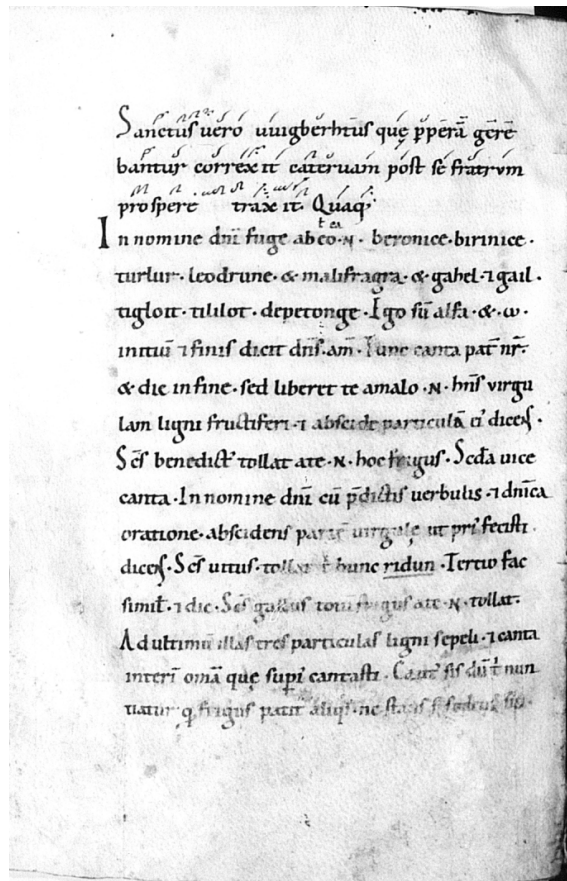 Sanctus uero uuigberhtus quę p̄perā gerē
bantur correxit cateruam post se fratrum
prospere traxit. Quaq;
ł ea
In nomine dn̄i fuge ab eo · N · beronice · birinice ·
turlur · leodrune · & malifragra · & gahel · ⁊ gail ·
tigloit · tililot · depetonge · Ego sū alfa · & · ω ·
initiū ⁊ finis dicit dn̄s · am̄ · Tunc canta pat̄ nr̄ ·
& dic in fine · sed liberet te a malo · N · hn̄s virgu
lam ligni fructiferi · ⁊ abscide particulā ei᷒ dicens ·
Sc̄s benedict᷒ tollat a te · N · hoc frigus · Scd̄a uice
canta · In nomine dn̄i cū p̄dictis uerbulis · ⁊ dn̄ica
oratione · abscidens partē virgulę ut pri᷒ fecisti ·
dicens · Sc̄s uitus · tollat ł hunc ridun · Tertio fac
simił · ⁊ dic · Sc̄s gallus totū frigus a te · N · tollat ·
Ad ultimū illas tres particulas ligni sepeli · ⁊ canta
interī om̄a quę superi᷒ cantasti · Caut᷒ sis dū t̄ nun
tiatur q̄ frigus patit᷒ aliq̄s · ne